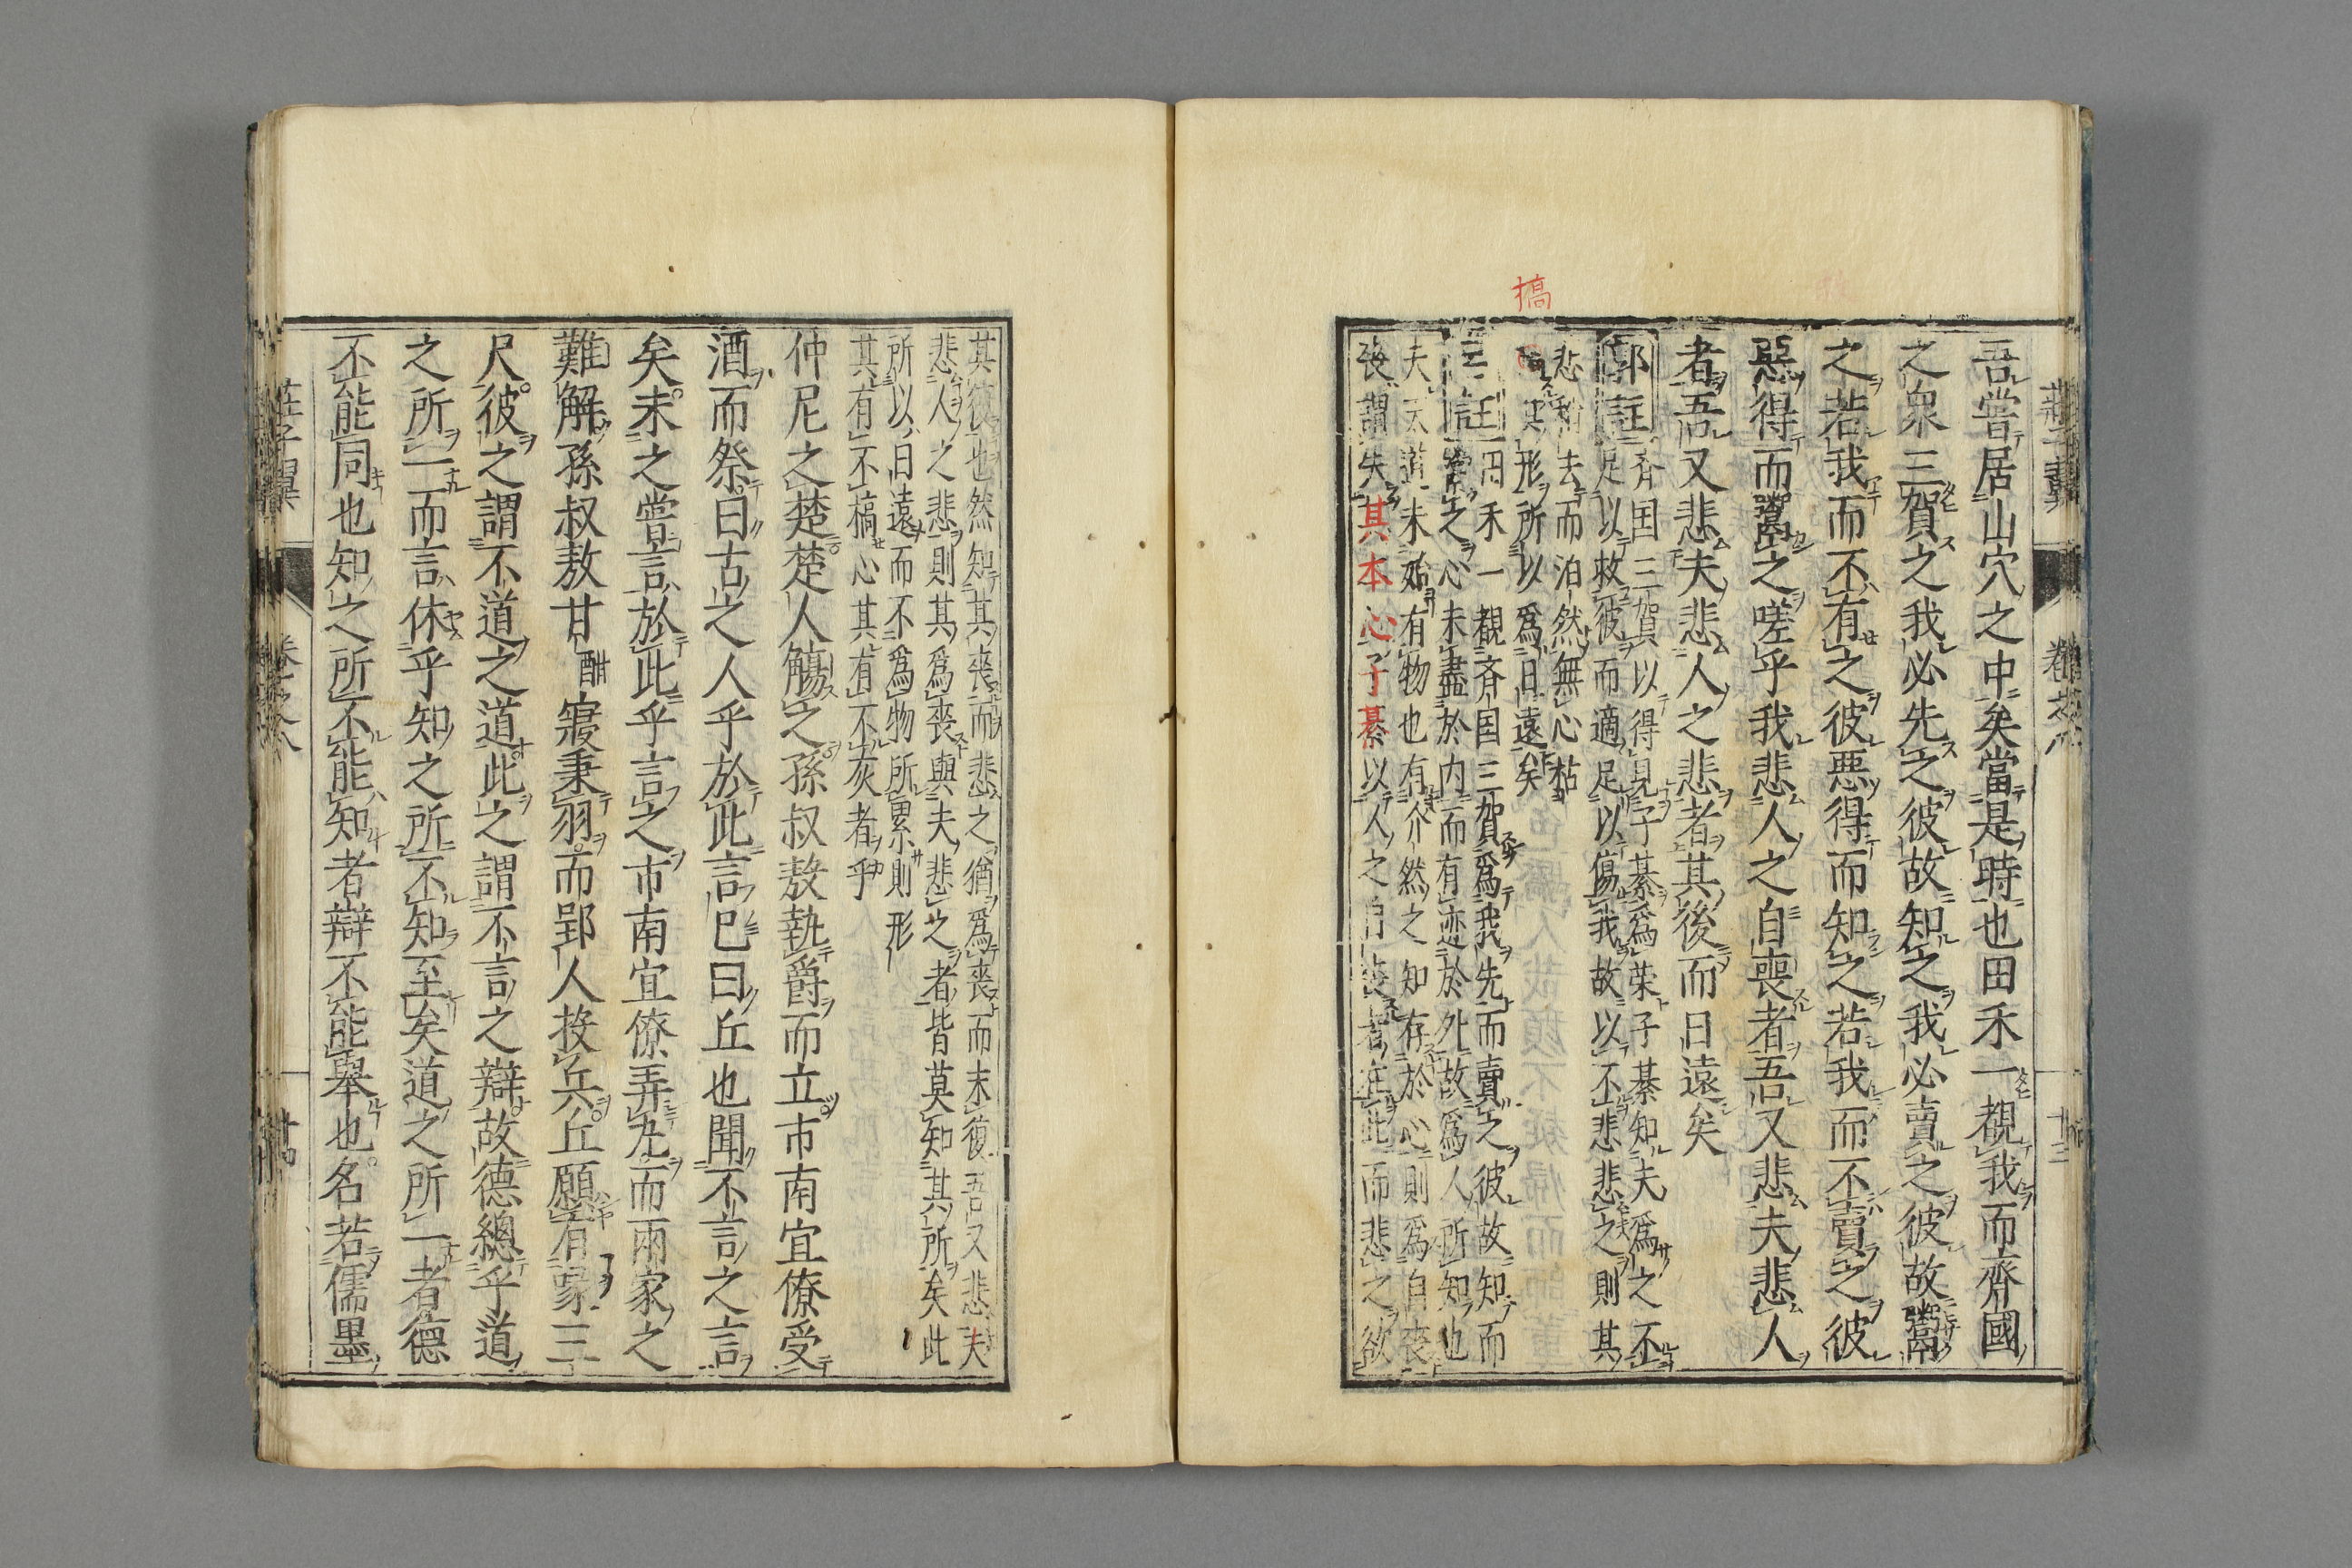 吾嘗居山穴之中矣當是時也田禾一覩我而齊國
之衆三賀之我必先之彼故知之我必賣之彼故鬻
之若我而不有之彼惡得而知之若我而不賣之彼
惡得而鬻之嗟乎我悲人之自喪者吾又悲夫悲人
者吾又悲夫悲人之悲者其後而日遠矣
郭註
齊国三賀以得見子綦爲榮子綦知夫爲之不
足以救彼而適足以傷我故以不悲悲之則其
悲稍去而泊然無心枯
其形所以爲日遠矣
槁
註
田禾一覩齊国三賀爲我先而賣之彼故知而
鬻之心未盡於内而有迹於外故爲人所知也
夫大道未始有物也有介然之知存於心則爲自喪
喪謂失其本心子綦以人之自喪者在此而悲之欲
其復也然知其喪而悲之猶爲喪而未復吾又悲夫
悲人之悲則其爲喪與夫悲之者皆莫知其所矣此
所以日遠而不爲物所累則形
其有不槁心其有不灰者乎
仲尼之楚楚人觴之孫叔敖執爵而立市南宜僚受
酒而祭曰古之人乎於此言已曰丘也聞不言之言
矣未之嘗言於此乎言之市南宜僚弄丸而兩家之
難解孫叔敖甘酣寢秉羽而郢人投兵丘願有喙三
尺彼之謂不道之道此之謂不言之辯故德總乎道
之所一而言休乎知之所不知至矣道之所一者德
不能同也知之所不能知者辯不能舉也名若儒墨
莊子翼
卷之八